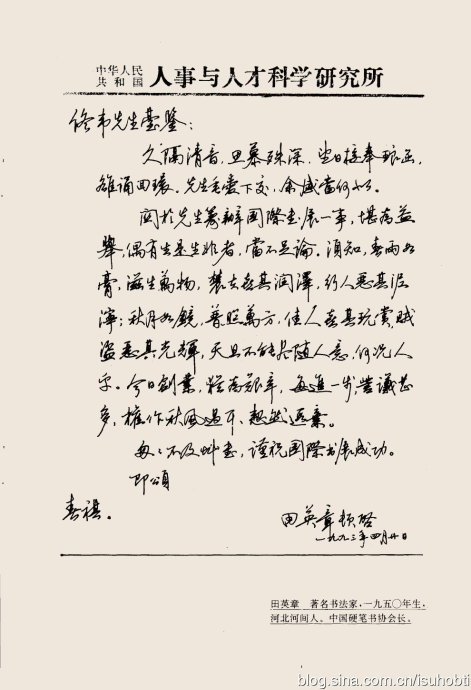 中华人民
共和国 人事与人才科学研究所
先生台鉴：
久隔清音，思慕殊深，当日接奉琅函，
雒诵回环。先生毛毫下交，余感当何如。
关于先生筹办国际书展一事，堪为益
举，偶有生是生非者，当不足论。须知，春雨如
膏，滋生万物，农夫喜其润泽，行人恶其泥
泞；秋月如镜，普照万方，佳人喜其玩赏，贼
盗恶其光辉，天且不能尽随人意，何况人
乎。今日创业，程为艰辛，每进一步，訾议甚
多，权作秋风过耳，
匆匆不及，谨祝国际书展成功。
即颂
春祺。
田英章顿启
一九九三年四月廿日
田英章 著名书法家，一九五〇年生，
河北河间人。中国硬笔书协会长。
blog.sina.com.cn/isuhobti